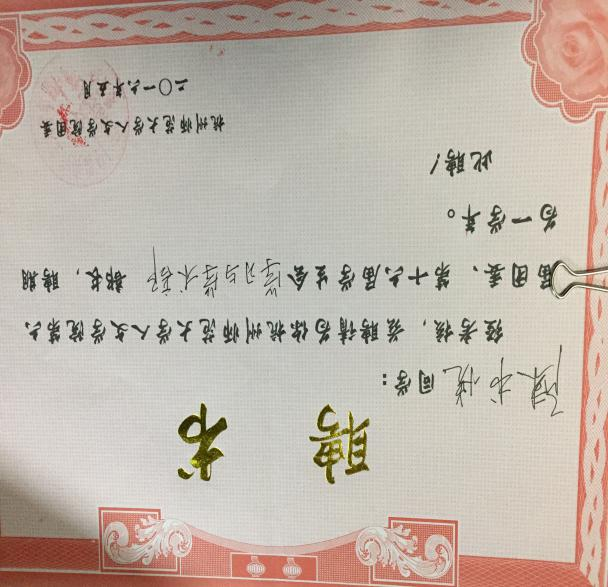 聘 书
陈书悦 同学：
经考核，兹聘请为你杭州师范大学人文学院第六
届团委、第十六届学生会 学习与学术部 部长，聘期
为一学年。
此聘！
杭州师范大学人文学院团委
二〇一六年五月